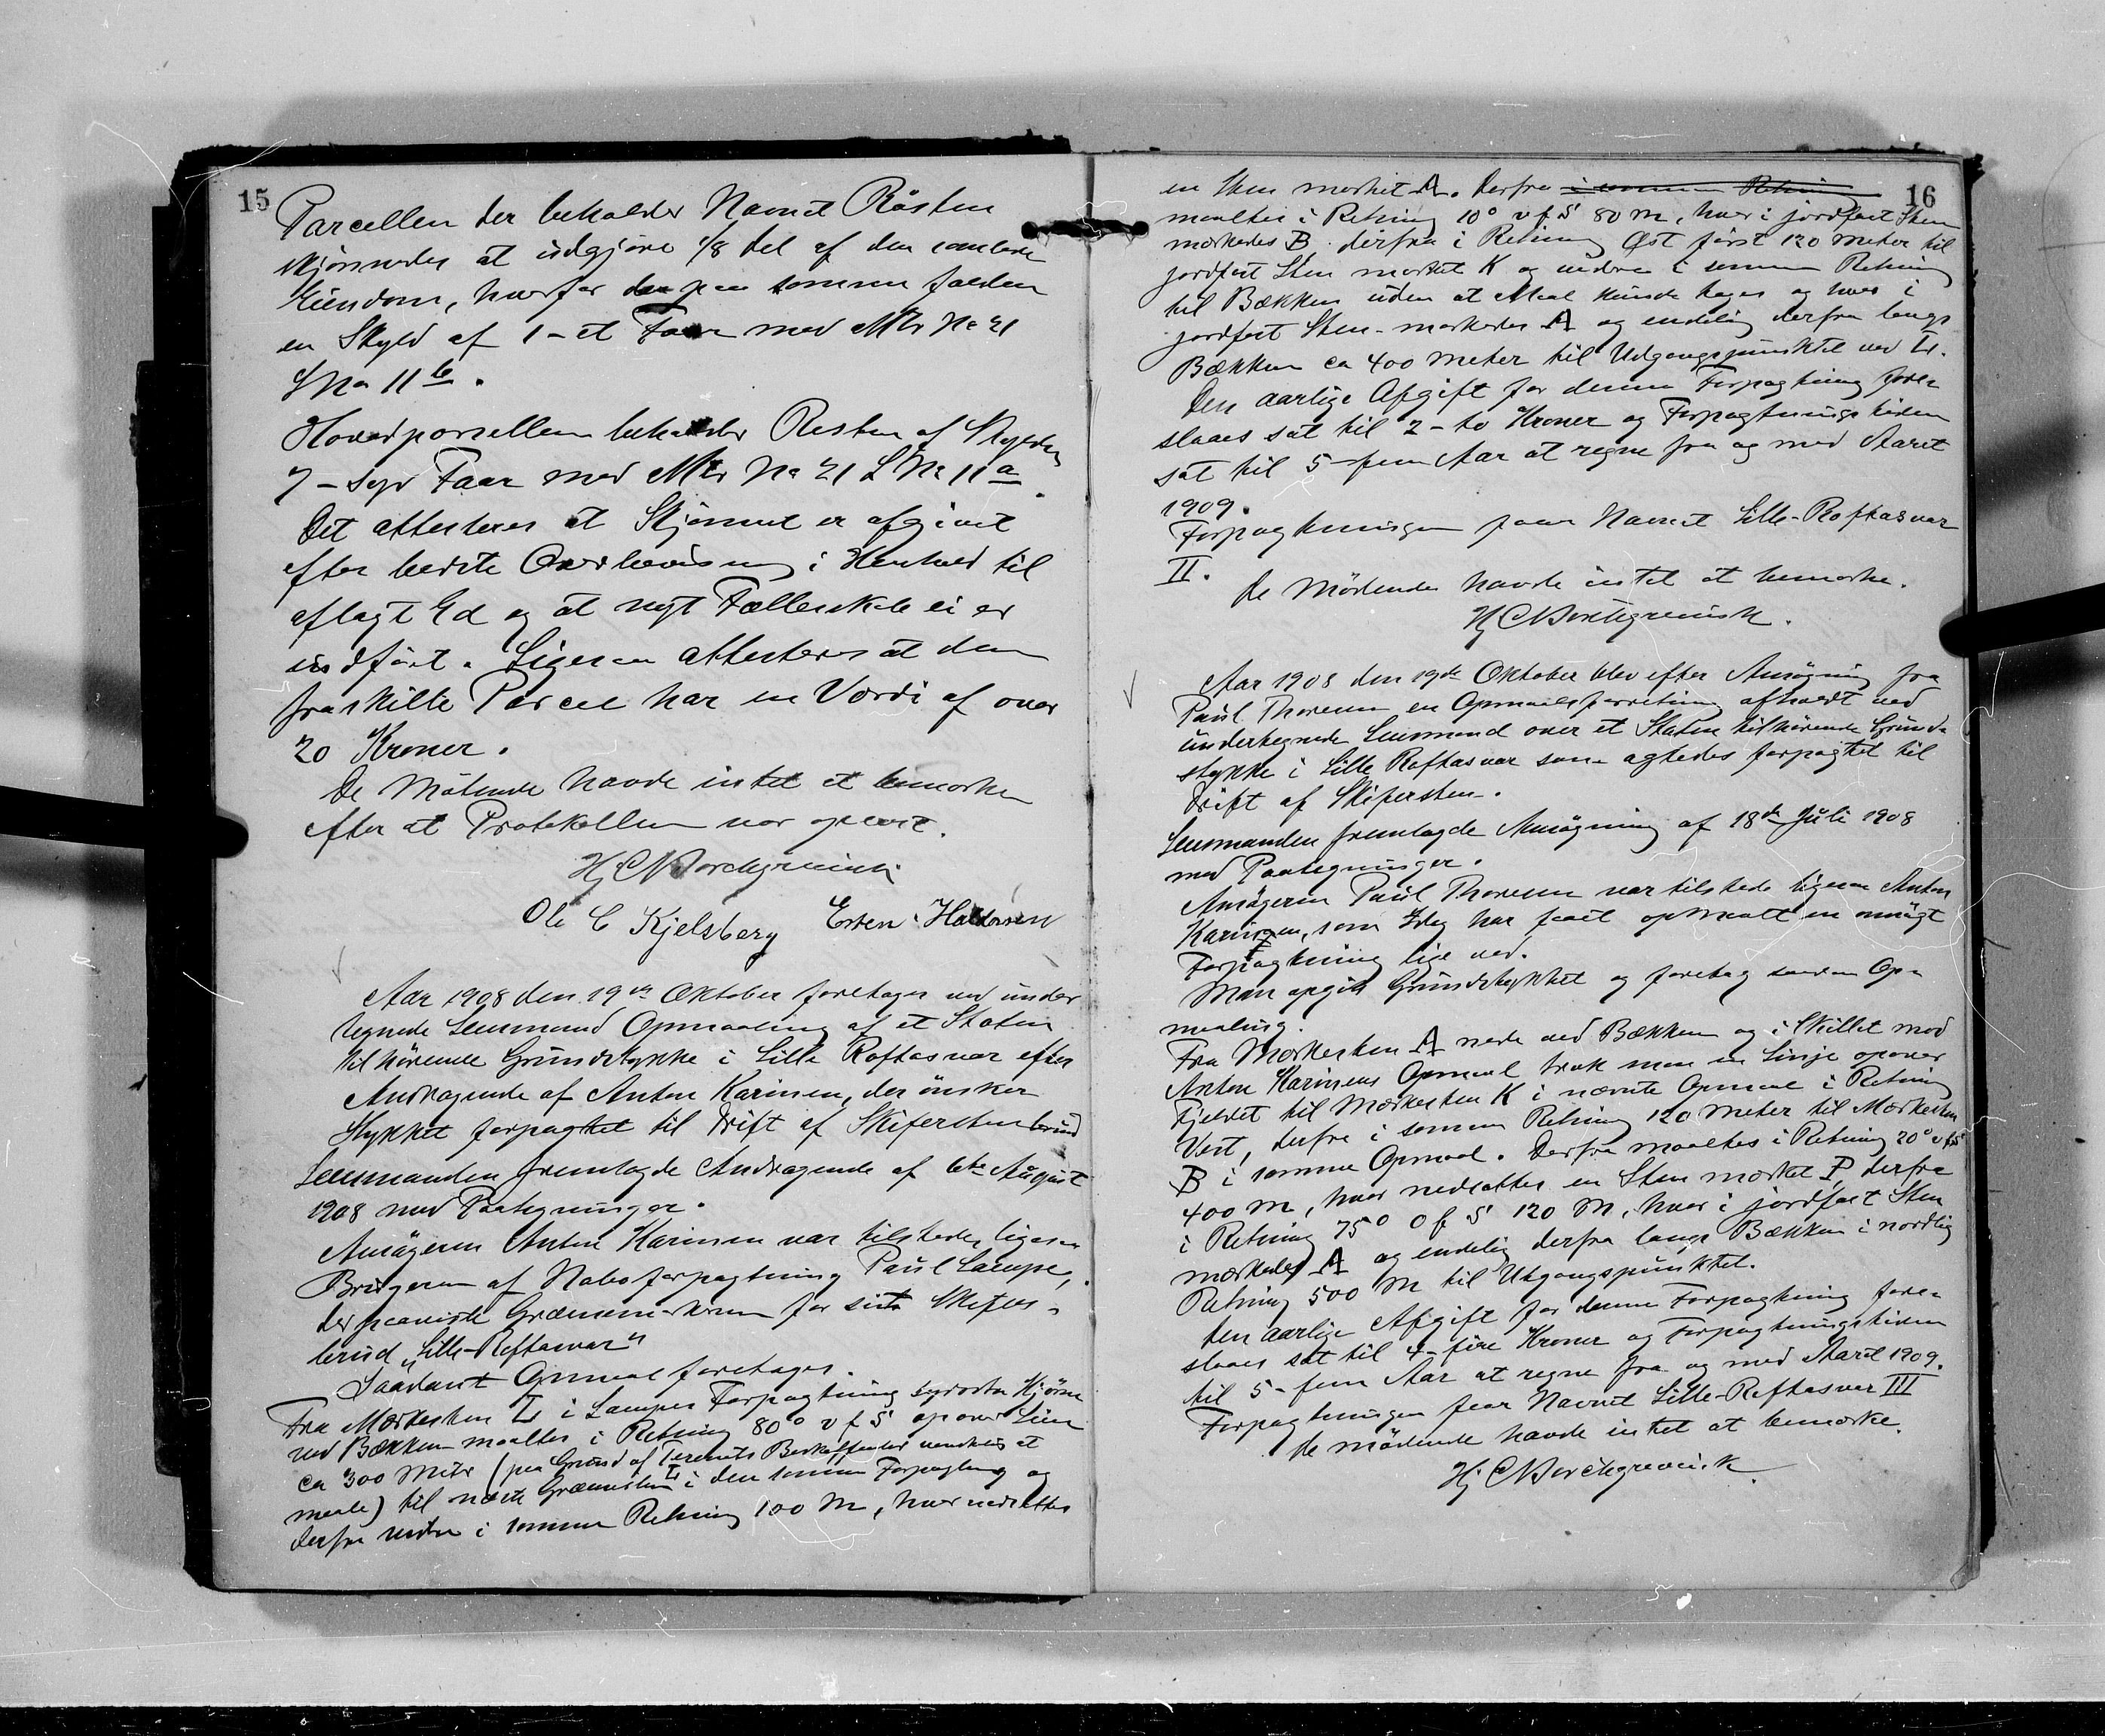 15
Parcellen der beholder Navnet Røsten
skjønnedes at udgjøre 1/8 Del af den samlede
Eiendom, hvorfor den paa samme falden
en Skyld af 1 - et Faar med Mtr No 21
LNo 11 b.
Hovedparsellen beholder Resten af Skylden
7 - syv Faar med Mtr No 21 LNo 11 a.
Det attesteres at Skjønnet er afgivet
efter bedste Overbevisning i Henhold til
aflagt Ed og at nyt Fællesskab ei er
indført. Ligesaa attesteres at den
fraskilte Parcel har en Værdi af over
20 Kroner.
De Mötende havde intet at bemærke
efter at Protokollen var oplæst.
Hj C Borchgrevink
Ole C Kjelsberg Esten Haldorsen
Aar 1908 den 19de Oktober foretages ved under
tegnede Lensmand Opmaaling af et Staten
tilhörende Grundstykke i Lille Raftasvar efter
Andragende af Anton Karinen, der ønsker
Stykket forpagtet til Drift af Skiferstenbrud
Lensmanden fremlagde Andragende af 6te August
1908 med Paategninger.
Ansögeren Anton Karinen var tilstede, ligesaa
Brugeren af Naboforpagtning Paul Lampe,
der paaviste Grænsemerkerne for sit Skifer-
brud "Lille-Reftasvar"
Saadant Opmaal foretages.
Fra Mærkesten L i Lampes Forpagtning sydostre Hjørne
ved Bækken maaltes i Retning 80° v f S opover Lien
ca 300 Meter (paa Grund af Terrænets Beskaffenhed vanskelig at
maale) til næste Grænsesten L i den samme Forpagtning og
derfra videre i samme Retning 100 M, hvor nedsattes
16
en Sten mærket A. Derfra i samme Retning
maaltes i Retning 10° v f S 80 M, hvor i jordfast Sten
mærkedes B. derfra i Retning Øst først 120 Meter til
jordfast Sten mærket K og videre i samme Retning
til Bækken uden at Maal kunde tages og hvor i
jordfast Sten mærkedes A og endelig derfra langs
Bækken ca 400 Meter til Udgangspunktet ved L.
Den aarlige Afgift for denne Forpagtning fore-
slaaes sat til 2 - to Kroner og Forpagtningstiden
sat til 5 - fem Aar at regne fra og med Aaret
1909.
Forpagtningen faar Navnet Lille-Raftasvar
II.
De Mødende havde intet at bemærke.
Hj C Borchgrevink.
Aar 1908 den 19de Oktober blev efter Ansøgning fra
Paul Thoresen en Opmaalsforretning afholdt ved
undertegnede Lensmand over et Staten tilhørende Grund-
stykke i Lille Raftasvar som agtedes forpagtet til
Drift af Skifersten.
Lensmanden fremlagde Ansøgning af 18de Juli 1908
med Paategninger.
Ansøgeren Paul Thoresen var tilstede ligesaa Anton
Karinen, som idag har faaet opmaalt en ansøgt
Forpagtning lige ved.
Man opgik Grundstykket og foretog saadan Op-
maaling.
Fra Mærkesten A nede ved Bækken og i Skillet mod
Anton Karinens Opmaal trak man en Linje opover
Fjeldet til Mærkesten K i nævnte Opmaal i Retning
Vest, derfra i samme Retning 120 Meter til Mærkesten
B i samme Opmaal. Derfra maaltes i Retning 20° v f S
400 M, hvor nedsattes en Sten mærket P, derfra
i Retning 75° O f S 120 M, hvor i jordfast Sten
mærkedes A og endelig derfra langs Bækken i nordlig
Retning 500 M til Utgangspunktet.
Den aarlige Afgift for denne Forpagtning fore-
slaaes sat til 4 - fire Kroner og Forpagtningstiden
til 5 - fem Aar at regne fra og med Aaret 1909.
Forpagtningen faar Navnet Lille-Raftasvar III
De mødende havde intet at bemærke.
Hj C Borchgrevink